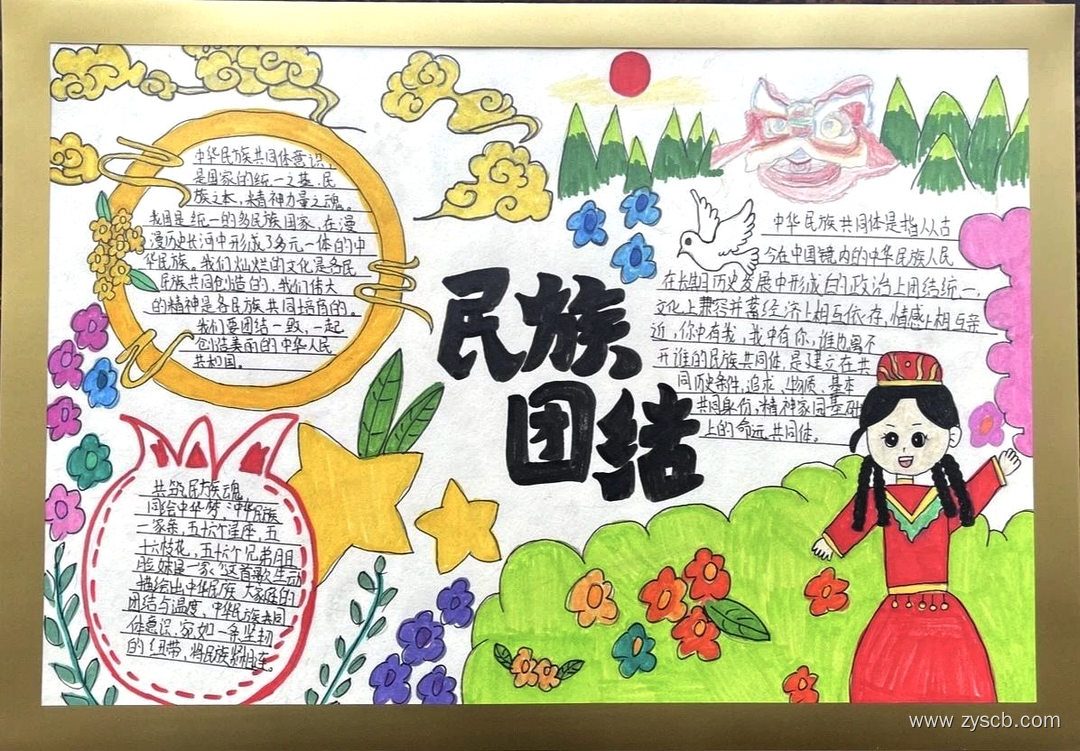 中华民族共同体意识,
是国家的统一之基、民
族之本,精神力量之魂。
我国是统一的多民族国家,在漫
漫历史长河中形成了多元一体的中
华民族。我们灿烂的文化是各民
民族共同创造的,我们伟大
的精神是各民族共同培育的。
我们要团结一致、一起
创造美丽的中华人民
共和国。
民族
团结
中华民族共同体是指从古
今在中国镜内的中华民族人民
在长期历史发展中形成的政治上团结统一,
文化上兼容并蓄经济上相互依存,情感上相互亲
近,你中有我,我中有你,谁也离不
开谁的民族共同体,是建立在共
同历史条件,追求、物质、基本
共同身份、精神家园基础
上的命运共同体。
共筑民族魂,
同绘中华梦,中华民族
一家亲,五十六个星座,五
十六枝花,五十六个兄弟
姐妹是一家"这首歌生动
描绘出中华民族大家庭的
团结与温度,中华民族共同
体意识,宛如一条坚韧
的纽带,将民族紧相连。
www.zyscb.com